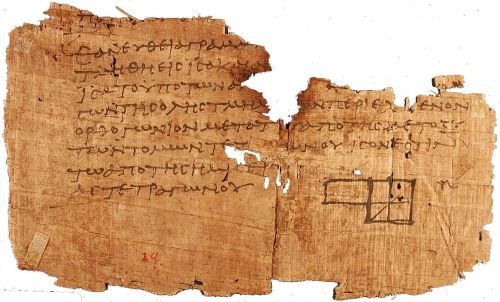 ΕΑΝ ΕΥΘΕΙΑ ΓΡΑΜΜ
ΤΜΗΘΗ ΕΙϹ ΙϹΑ ΚΑΙ ΑΝ
ΙϹΑ ΤΟ ΥΠΟ ΤΩΝ ΑΝ
ΙϹΩΝ ΤΗϹ ΟΛΗϹ ΤΜΗ ΩΝ ΠΕΡΙΕΧ ΜΕΝΟΝ
ΟΡΘΟΓΩΝΙΟΝ ΜΕΤΑ ΤΟΥ ΑΠΟ ΤΗϹ ΜΕΤΟΞΥ
ΤΩΝ ΤΟΜΩΝ ΤΕ ΟΥ ΙϹΟΝ ΕϹΤΙΝ
ΤΩ ΑΠΟ ΤΗϹ ΗΜΙ
ΑϹ ΤΕΤΡΑΓΩΝΟΥ
29